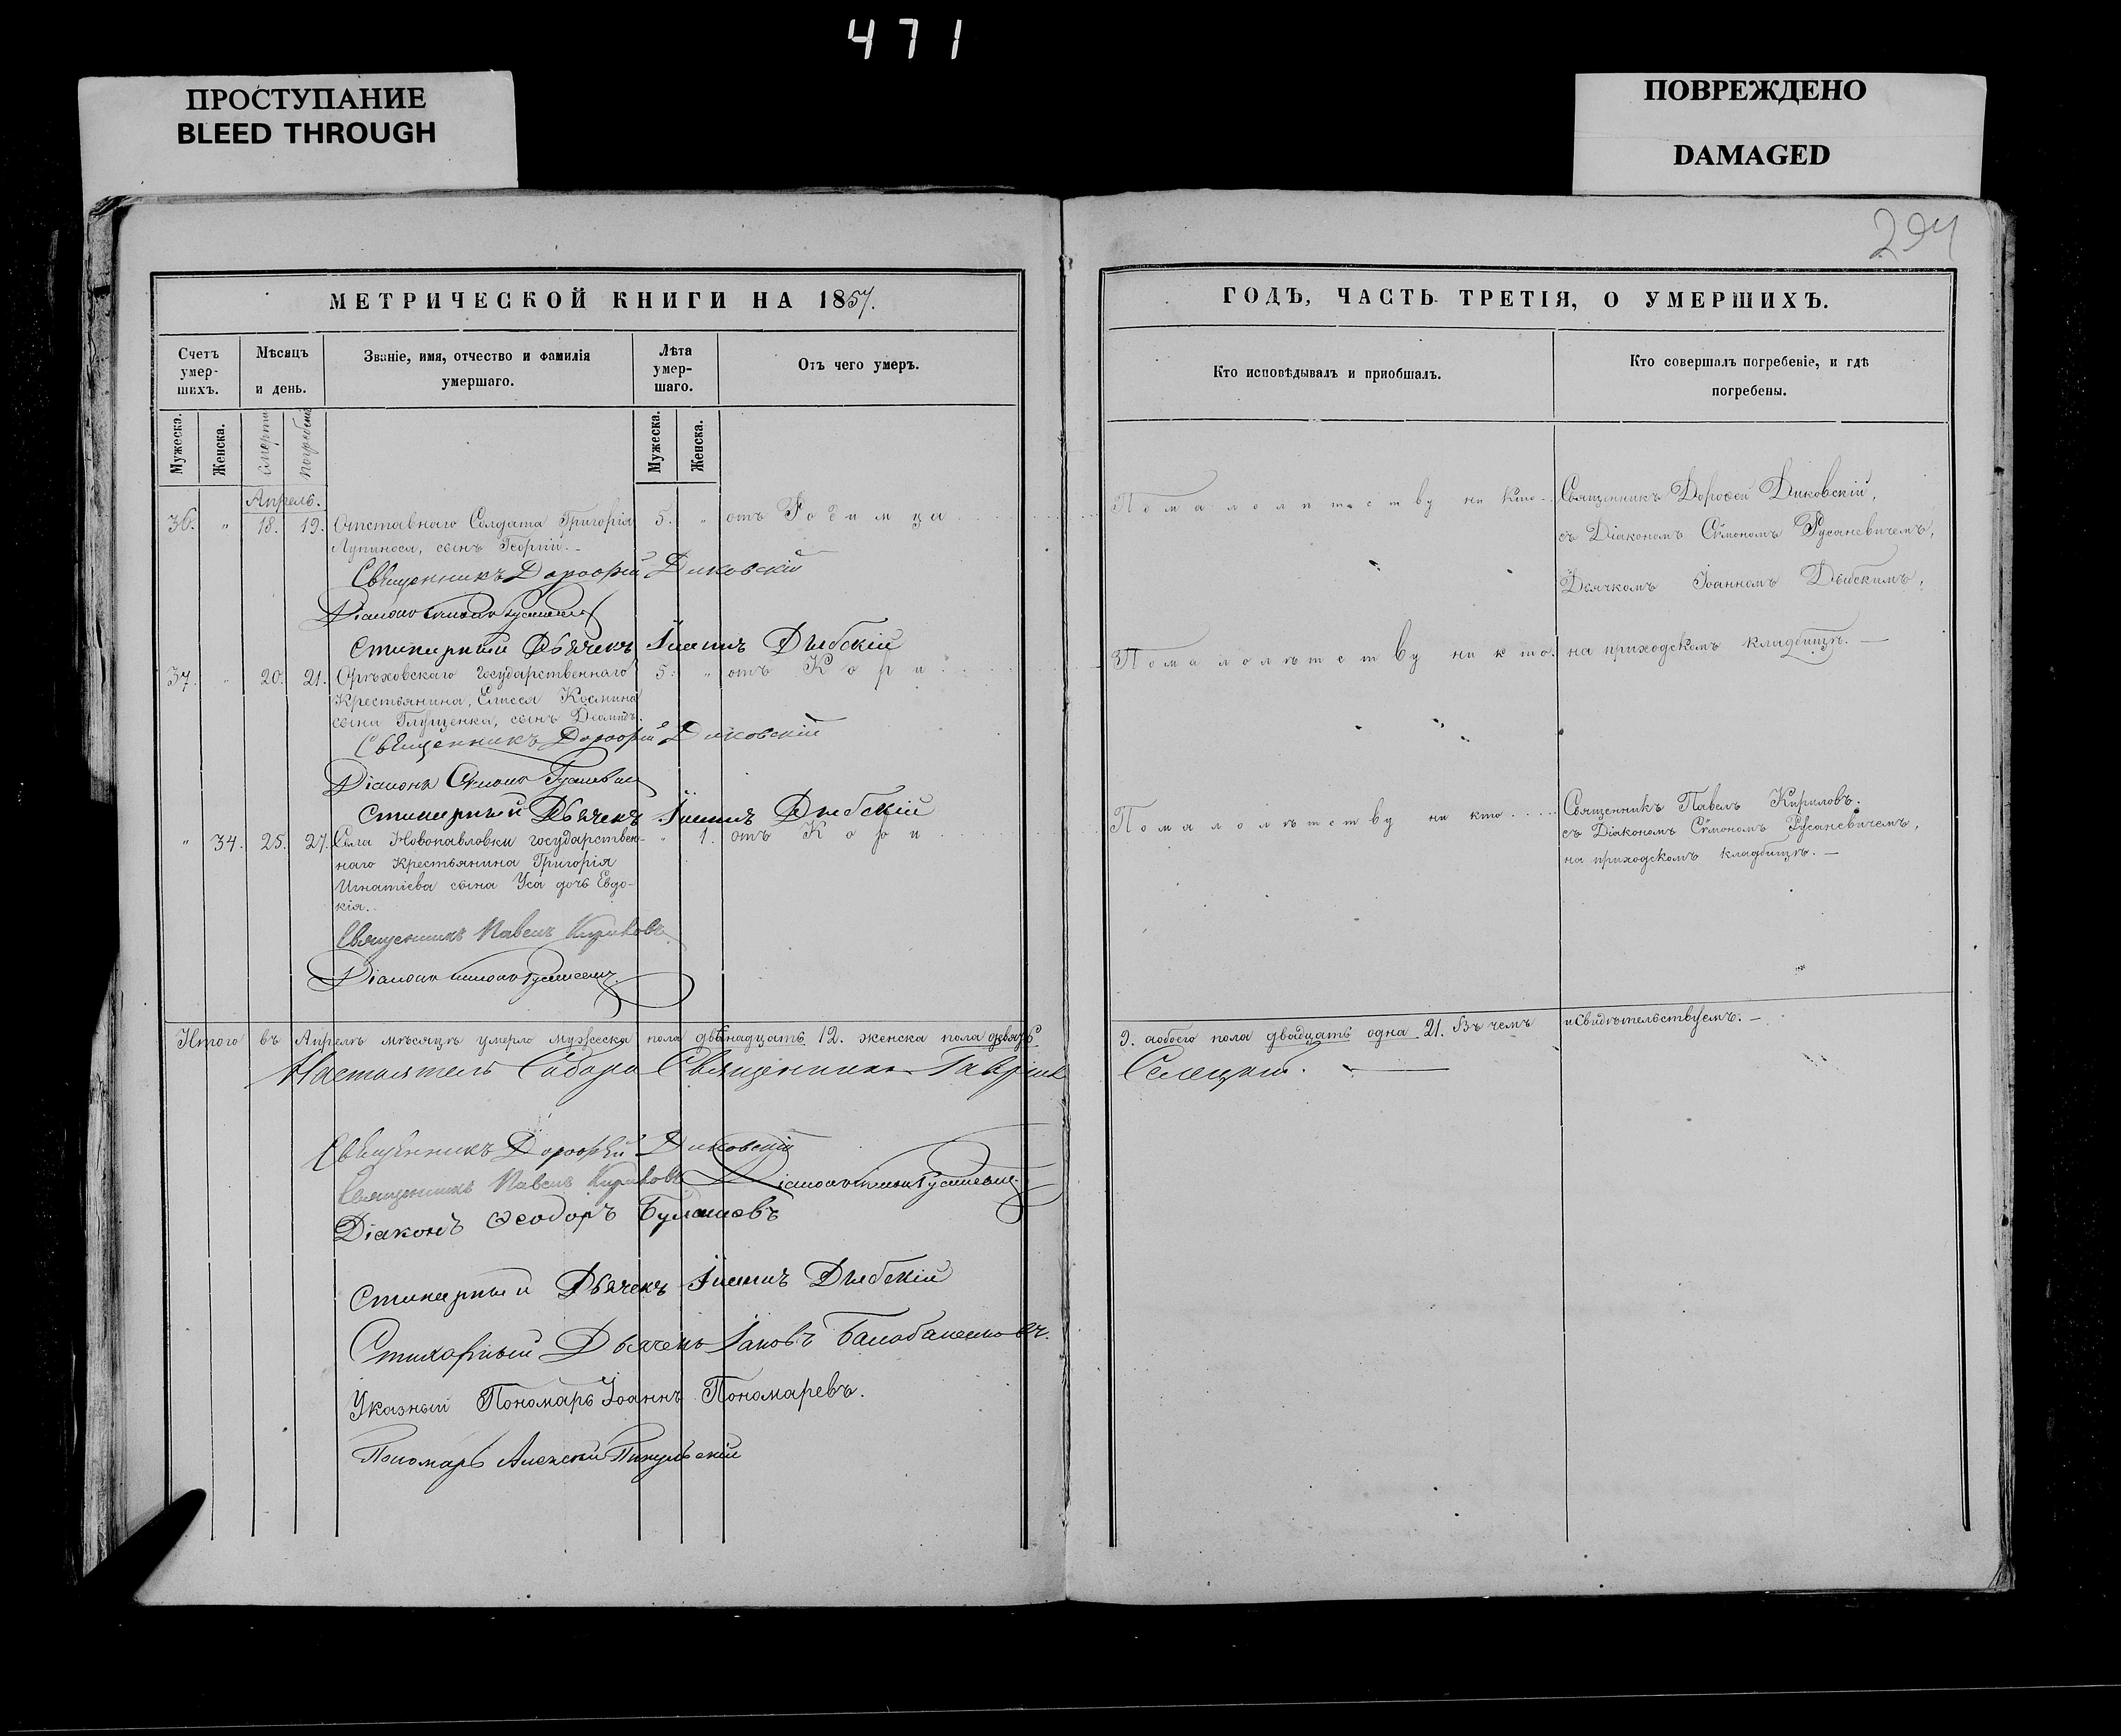 471
ПРОСТУПАНИЕ
BLEED THROUGH
ПОВРЕЖДЕНО
DAMAGED
294
МЕТРИЧЕСКОЙ КНИГИ НА 1857.
Счетъ умер-шихъ.
Мѣсяцъ и день.
Званіе, имя, отчество и фамилія умершаго.
Лѣта умер-шаго.
Отъ чего умеръ.
Мужеска.
Женска.
смерти
погребенія
Мужеска.
Женска.
Апрель.
36. " 18. 19. Отставнаго Солдата Григорія 5. " отъ Родимца
Лупиноса, сынъ Георгій.
Священникъ Дороѳей Диковскій
Діаконъ Симонъ Русаневичъ
Стихарный Дьячекъ Іоаннъ Дыбскій
37. " 20. 21. Орѣховскаго государственнаго 5. " отъ Кори
Крестьянина, Елисея Космина
сына Глущенка, сынъ Діомидъ.
Священникъ Дороѳей Диковскій
Діаконъ Симонъ Русаневичъ
Стихарный Дьячекъ Іоаннъ Дыбскій
" 34. 25. 27. Села Новопавловки государствен- " 1. отъ Кори
наго Крестьянина Григорія
Игнатіева сына Уса дочь Евдо-
кія.
Священникъ Павелъ Кириловъ
Діаконъ Симонъ Русаневичъ
Итого въ Апрелѣ мѣсяцѣ умерло мужеска пола двѣнадцать 12. женска пола девять
Настоятель Собора Священникъ Гавріилъ
Священникъ Дороѳей Диковскій
Священникъ Павелъ Кириловъ Діаконъ Симонъ Русаневичъ
Діаконъ Ѳеодоръ
Стихарный Дьячекъ Іоаннъ Дыбскій
Стихарный Дьячекъ Іаковъ
Указный Пономарь Іоаннъ Пономаревъ.
Пономарь Алексій
ГОДЪ, ЧАСТЬ ТРЕТІЯ, О УМЕРШИХЪ.
Кто исповѣдывалъ и пріобшалъ.
Кто совершалъ погребеніе, и гдѣ погребены.
По малолѣтству ни кто
Священникъ Дороѳей Диковскій,
съ Діакономъ Симономъ Русаневичемъ,
Дьячкомъ Іоанномъ Дыбскимъ,
По малолѣтству ни кто.
на приходскомъ кладбищѣ.
По малолѣтству ни кто
Священникъ Павелъ Кириловъ.
съ Діакономъ Симономъ Русаневичемъ,
на приходскомъ кладбищѣ.
9. а обоего пола двадцать одна 21. Въ чемъ и свидѣтельствуемъ.
Селецкій.